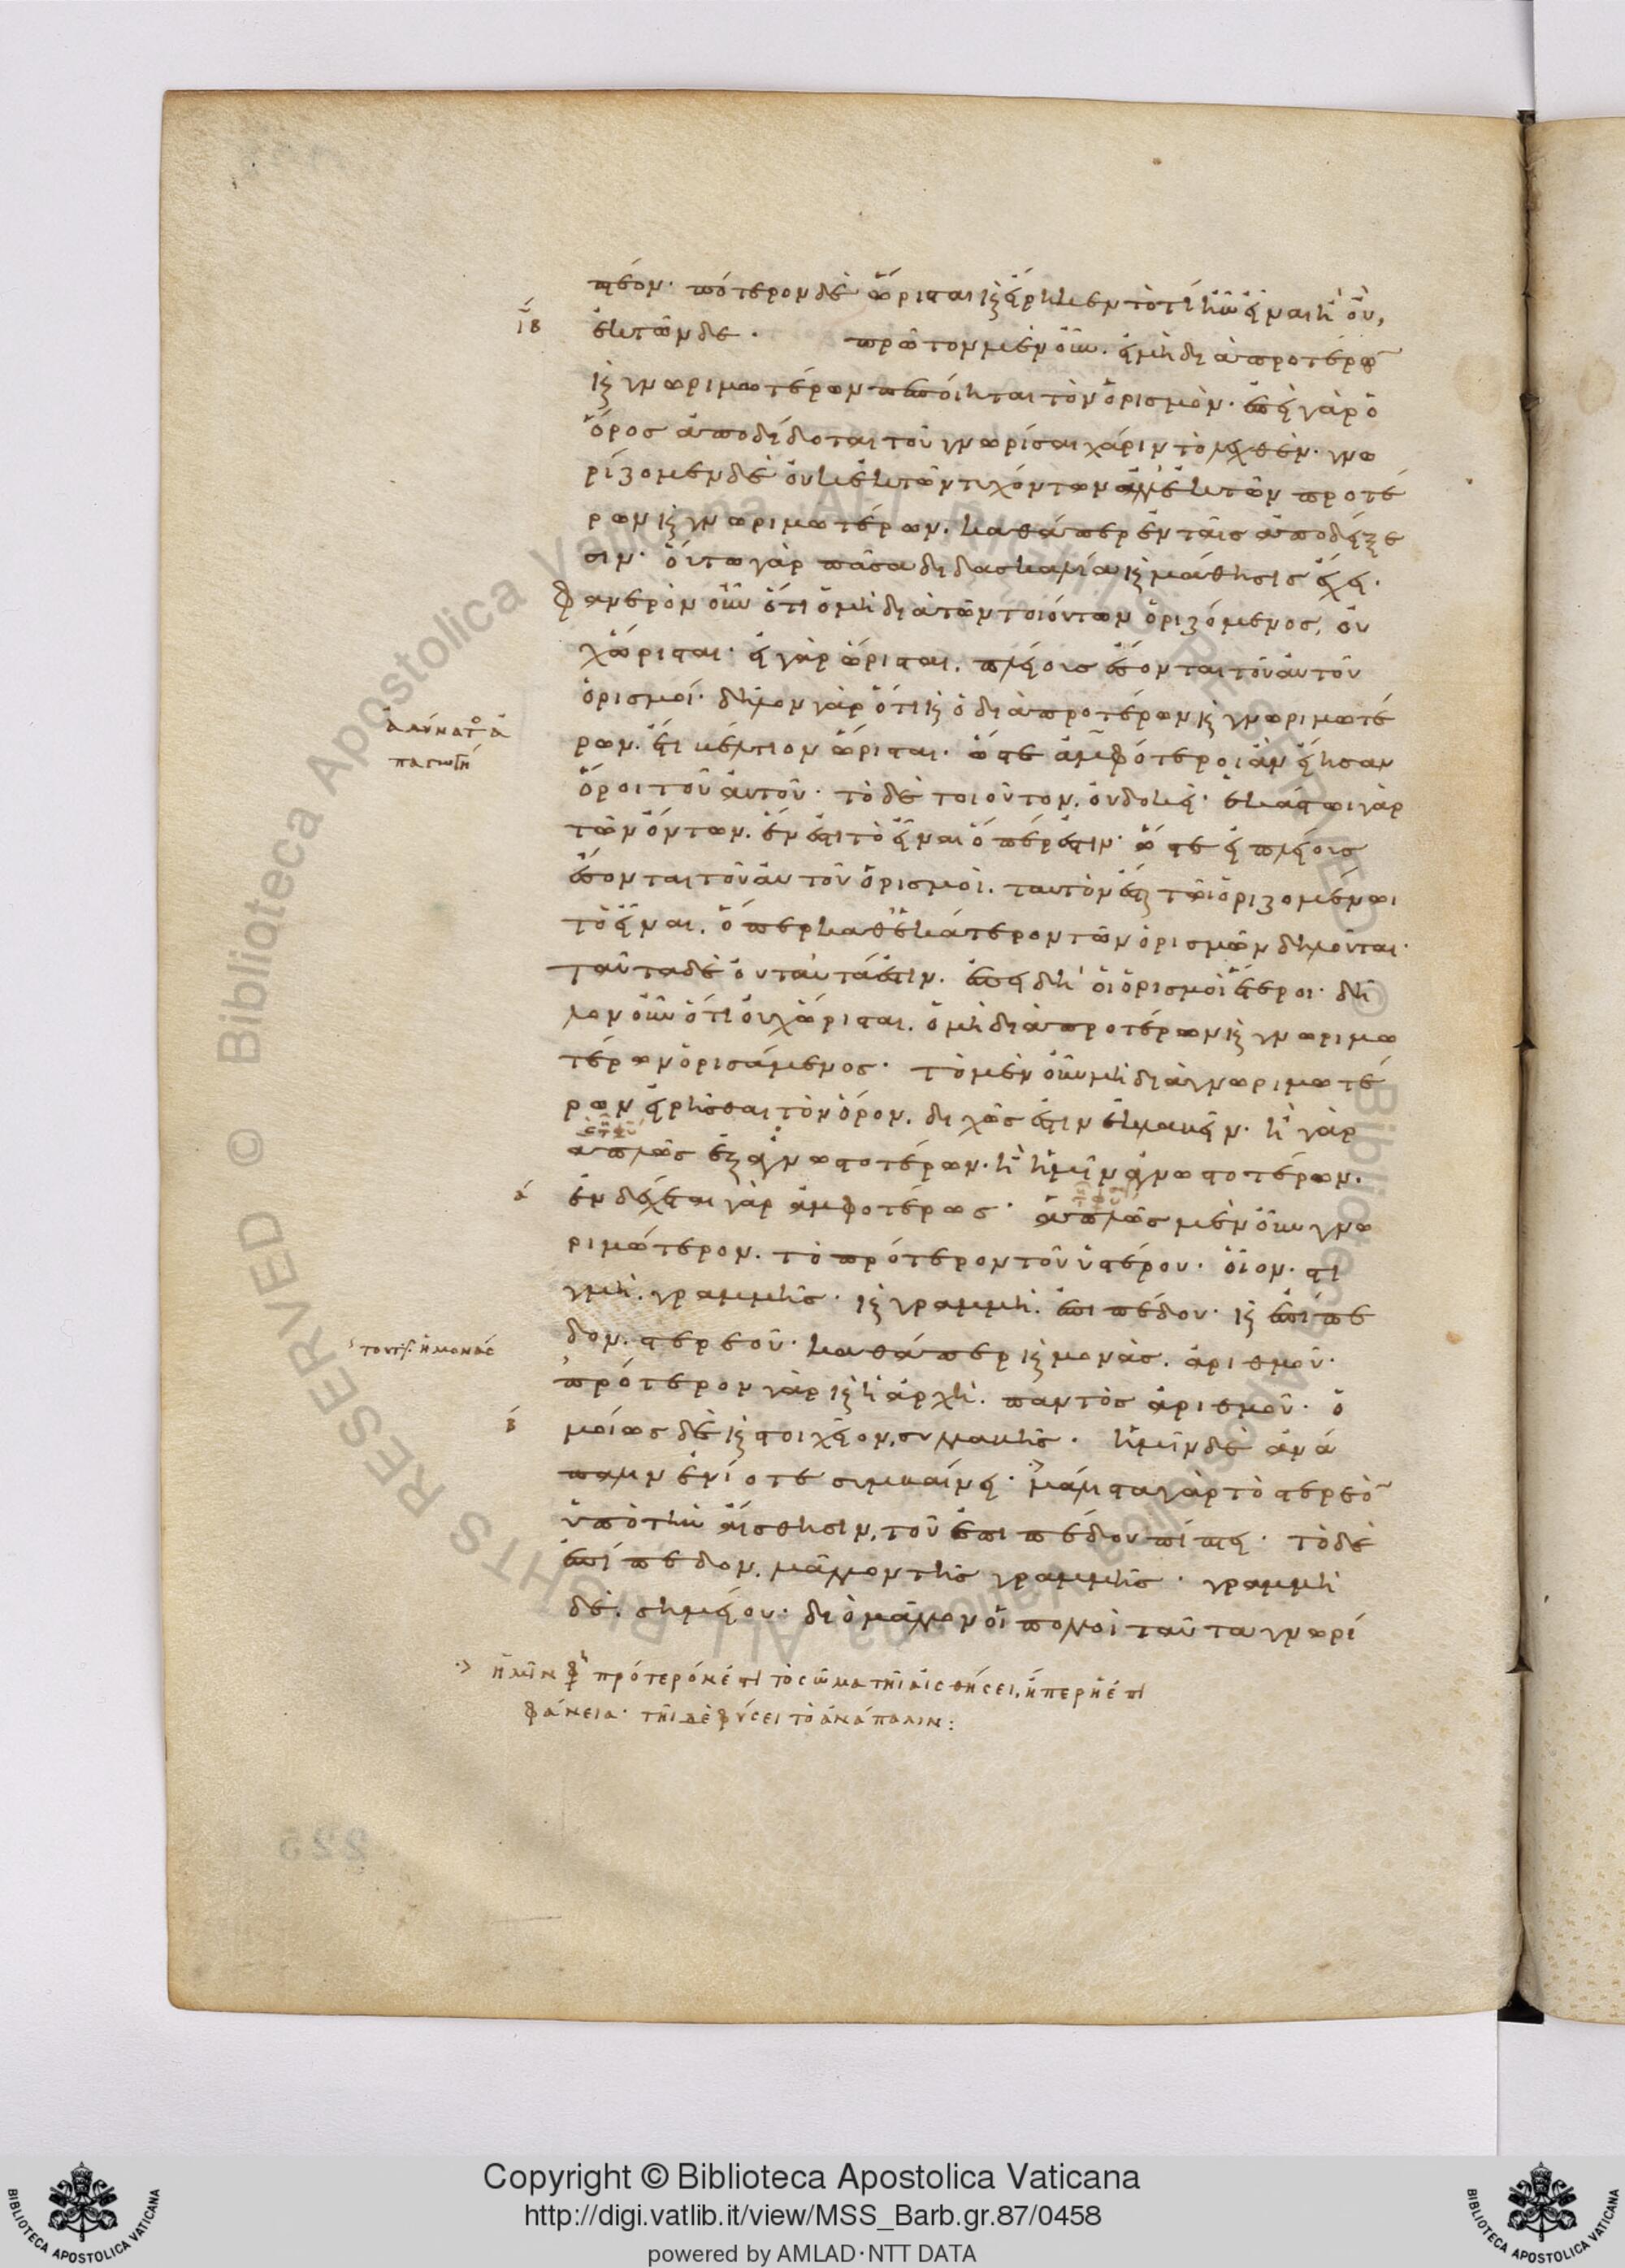 πτέον· πότερον δὲ ὥρισται καὶ εἴρηκεν τὸ τί ἦν εἶναι ἢ οὔ,
ιβ ἐκ τῶνδε· πρῶτον μὲν οὖν. εἰ μὴ διὰ προτέρων
καὶ γνωριμωτέρων πεποίηται τὸν ὁρισμόν· ἐπεὶ γὰρ ὁ
ὅρος ἀποδίδοται τοῦ γνωρίσαι χάριν τὸ λεχθέν· γνω
ρίζομεν δὲ οὐκ ἐκ τῶν τυχόντων ἀλλ' ἐκ τῶν προτέ
ρων καὶ γνωριμωτέρων. καθάπερ ἐν ταῖς ἀποδείξε
σιν· οὕτω γὰρ πᾶσα διδασκαλία καὶ μάθησις ἔχει·
φανερὸν οὖν ὅτι ὁ μὴ διὰ τῶν τοιούτων ὁριζόμενος, οὐ
χ ὥρισται· εἰ γὰρ ὥρισται. πλείους ἔσονται τοῦ αὐτοῦ
ὁρισμοί· δῆλον γὰρ ὅτι καὶ ὁ διὰ προτέρων καὶ γνωριμωτέ
ἀδύνατον
ρων. ἔτι βέλτιον ὥρισται· ὥστε ἀμφότεροι ἂν εἴησαν
ὅροι τοῦ αὐτοῦ· τὸ δὲ τοιοῦτον. οὐ δοκεῖ· ἑκάστωι γὰρ
τῶν ὄντων. ἕν ἐστι τὸ εἶναι ὅπερ ἐστιν· ὥστε εἰ πλείους
ἔσονται τοῦ αὐτοῦ ὁρισμοὶ. ταυτὸν ἔσται τῶι ὁριζομένωι
τὸ εἶναι. ὅπερ καθ' ἑκάτερον τῶν ὁρισμῶν δηλοῦται·
ταῦτα δὲ οὐ ταὐτά ἐστιν. ἐπειδὴ οἱ ὁρισμοὶ ἕτεροι· δῆ
λον οὖν ὅτι οὐχ ὥρισται. ὁ μὴ διὰ προτέρων καὶ γνωριμω
τέρων ὁρισάμενος· τὸ μὲν οὖν μὴ διὰ γνωριμωτέ
ρων εἰρῆσθαι τὸν ὅρον. διχῶς ἐστιν ἐκλαβεῖν· ἢ γὰρ
ἁπλῶς ἐξ ἀγνωστοτέρων· ἢ ἡμῖν ἀγνωστοτέρων.
α ἐνδέχεται γὰρ ἀμφοτέρως· ἁπλῶς μὲν οὖν γνω
ριμώτερον. τὸ πρότερον τοῦ ὑστέρου· οἷον. στι
γμὴ. γραμμῆς· καὶ γραμμὴ. ἐπιπέδου· καὶ ἐπίπε
τουτέστιν ἡ μονάς
δον. στερεοῦ· καθάπερ καὶ μονὰς. ἀριθμοῦ·
πρότερον γὰρ καὶ ἡ ἀρχὴ. παντὸς ἀριθμοῦ· ὁ
β μοίως δὲ καὶ στοιχεῖον, συλλαβῆς· ἡμῖν δὲ ἀνά
παλιν ἐνίοτε συμβαίνει· μάλιστα γὰρ τὸ στερεὸν
ὑπὸ τὴν αἴσθησιν, τοῦ ἐπιπέδου πίπτει· τὸ δὲ
ἐπίπεδον. μᾶλλον τῆς γραμμῆς· γραμμὴ
δὲ. σημείου· διὸ μᾶλλον οἱ πολλοὶ ταῦτα γνωρί
ἡμῖν γὰρ πρότερόν ἐστι τὸ σῶμα τῆι αἰσθήσει, ἤπερ ἡ ἐπι
φάνεια· τῆι δὲ φύσει τὸ ἀνάπαλιν:
225
Copyright © Biblioteca Apostolica Vaticana
http://digi.vatlib.it/view/MSS_Barb.gr.87/0458
powered by AMLAD·NTT DATA